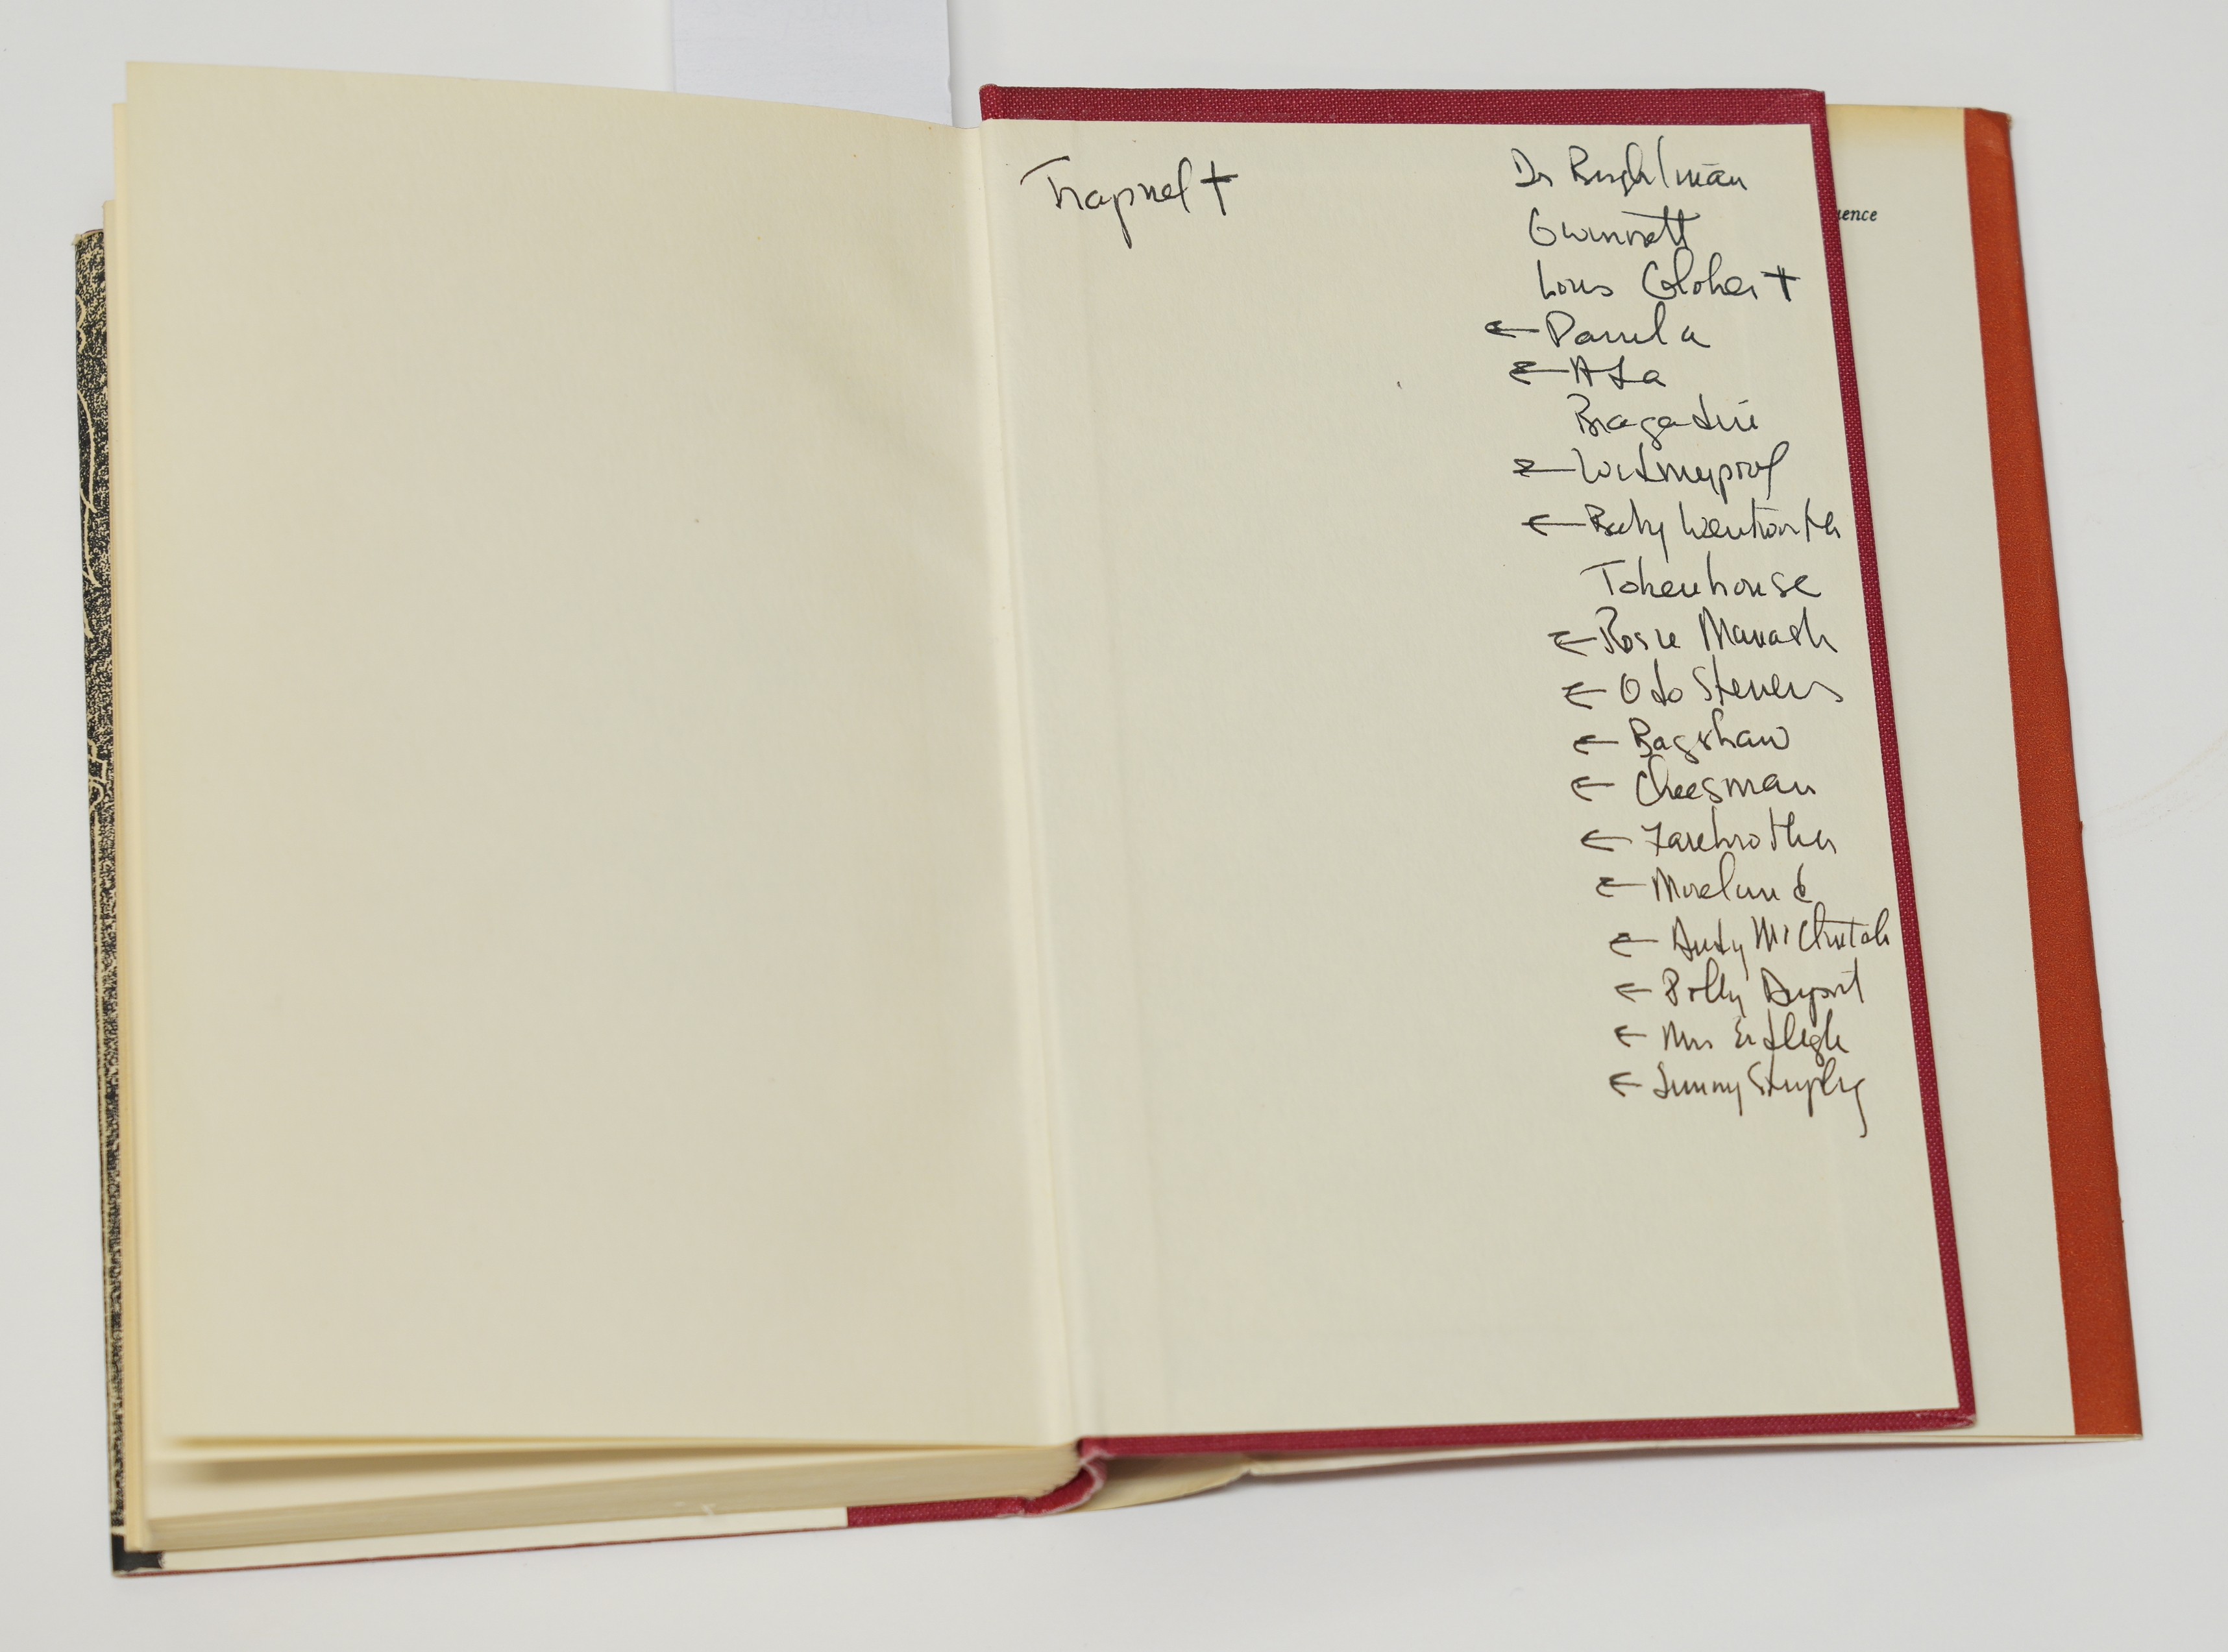 Trapnel †
Dr Brightman
Gwinnett
Louis Glober †
← Pamela
← Ada
Bragadin
← Widmerpool
← Baby Wentworth
Tokenhouse
← Rosie Manasch
← Odo Stevens
← Bagshaw
← Cheesman
← Farebrother
← Moreland
← Audry McClintick
← Polly Duport
← Mrs Erdleigh
← Jimmy Stripling
uence